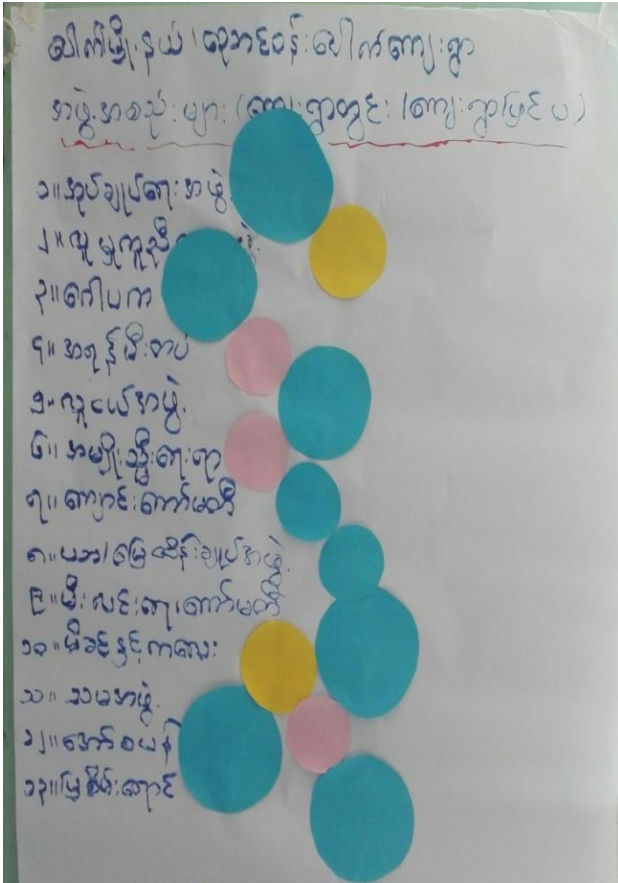 ပေါက်မြို့နယ်၊ ပေါက်ကျေးရွာ
အဖွဲ့အစည်းများ (ကျေးရွာတွင်း၊ ကျေးရွာပြင်ပ)
၁။ အုပ်ချုပ်ရေးအဖွဲ့
၂။ လူမှုကူညီ
၃။ ဂေါပက
၄။ အရန်မီးတပ်
၅။ လူငယ်အဖွဲ့
၆။ အမျိုးသ္မီးရေးရာ
၇။ ကျောင်းကော်မတီ
၈။ ပအ/မြေထိန်းချုပ်အဖွဲ့
၉။ မီးလင်းရေးကော်မတီ
၁၀။ မိခင်နှင့်ကလေး
၁၁။ သမအဖွဲ့
၁၂။ အော်စယန်
၁၃။ မြစိမ်းရောင်